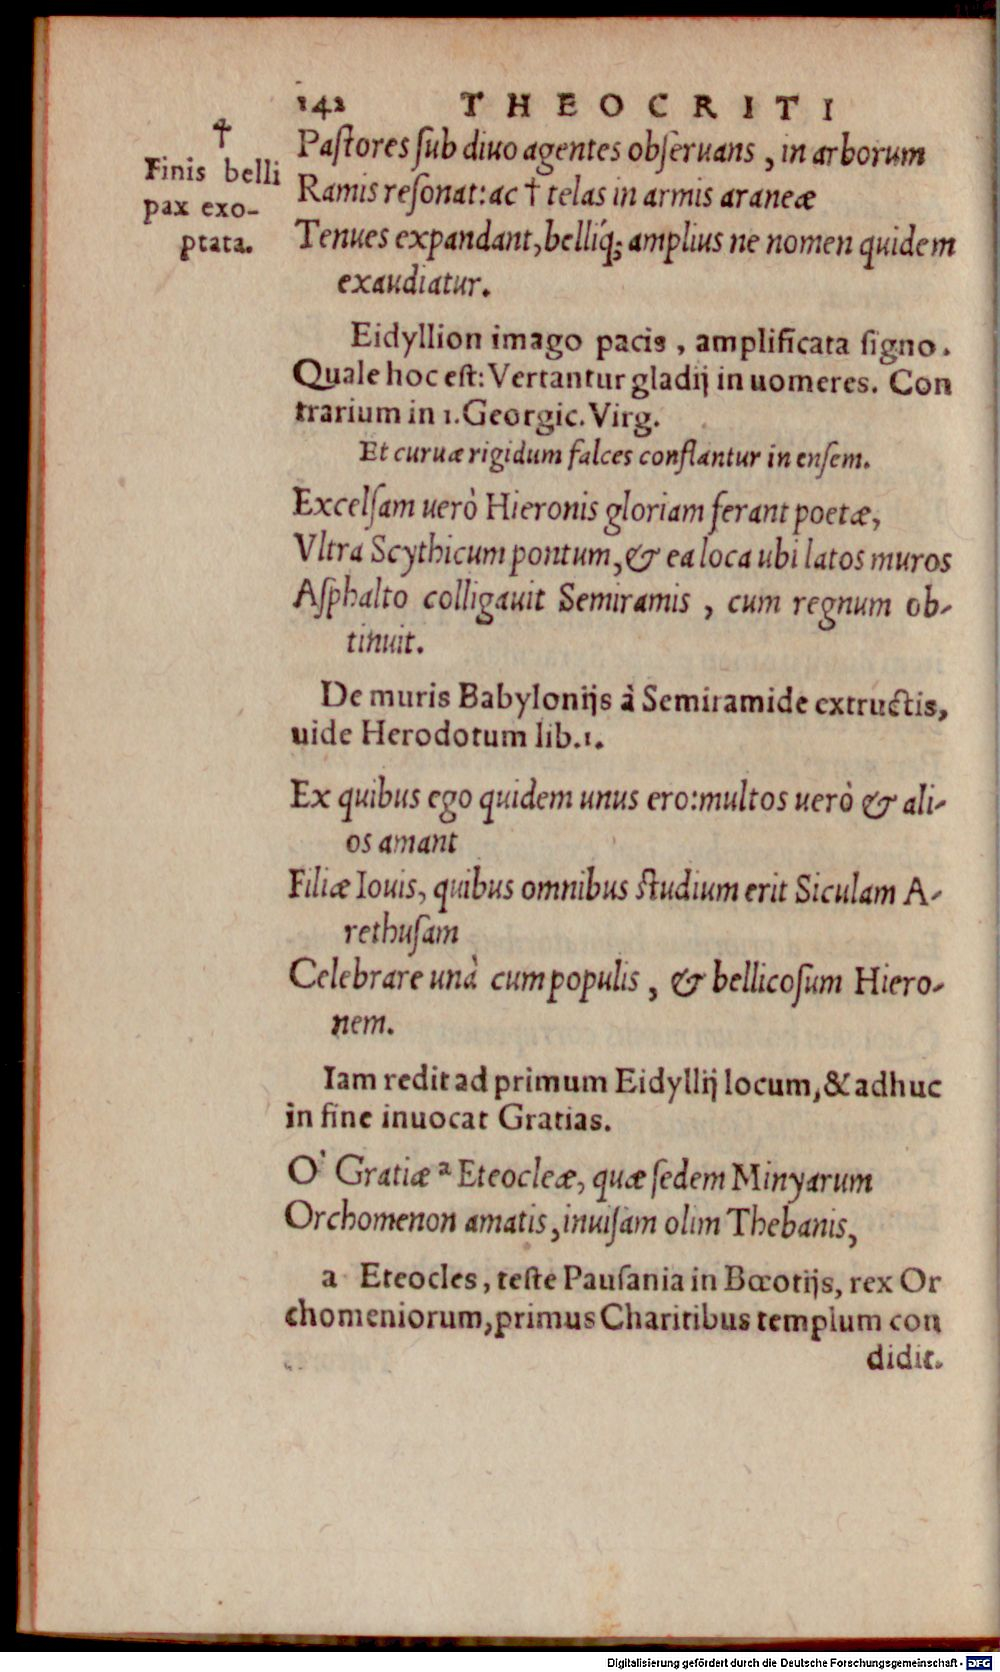 142 THEOCRITI
†
Finis belli
pax exo-
ptata.
Paſtores ſub diuo agentes obſeruans, in arborum
Ramis reſonat: ac † telas in armis araneæ
Tenues expandant, belliq́; amplius ne nomen quidem
exaudiatur.
Eidyllion imago pacis, amplificata ſigno.
Quale hoc eſt: Vertantur gladij in uomeres. Con
trarium in 1. Georgic. Virg.
Et curuæ rigidum falces conflantur in enſem.
Excelſam uerò Hieronis gloriam ferant poetæ,
Vltra Scythicum pontum, & ea loca ubi latos muros
Aſphalto colligauit Semiramis, cum regnum ob-
tinuit.
De muris Babylonijs à Semiramide extructis,
uide Herodotum lib. 1.
Ex quibus ego quidem unus ero: multos uerò & ali-
os amant
Filiæ Iouis, quibus omnibus ſtudium erit Siculam A-
rethuſam
Celebrare unà cum populis, & bellicoſum Hiero-
nem.
Iam redit ad primum Eidyllij locum, & adhuc
in fine inuocat Gratias.
O' Gratiæ ª Eteocleæ, quæ ſedem Minyarum
Orchomenon amatis, inuiſam olim Thebanis,
a Eteocles, teſte Pauſania in Bœotijs, rex Or
chomeniorum, primus Charitibus templum con
didit.
Digitalisierung gefördert durch die Deutsche Forschungsgemeinschaft - DFG